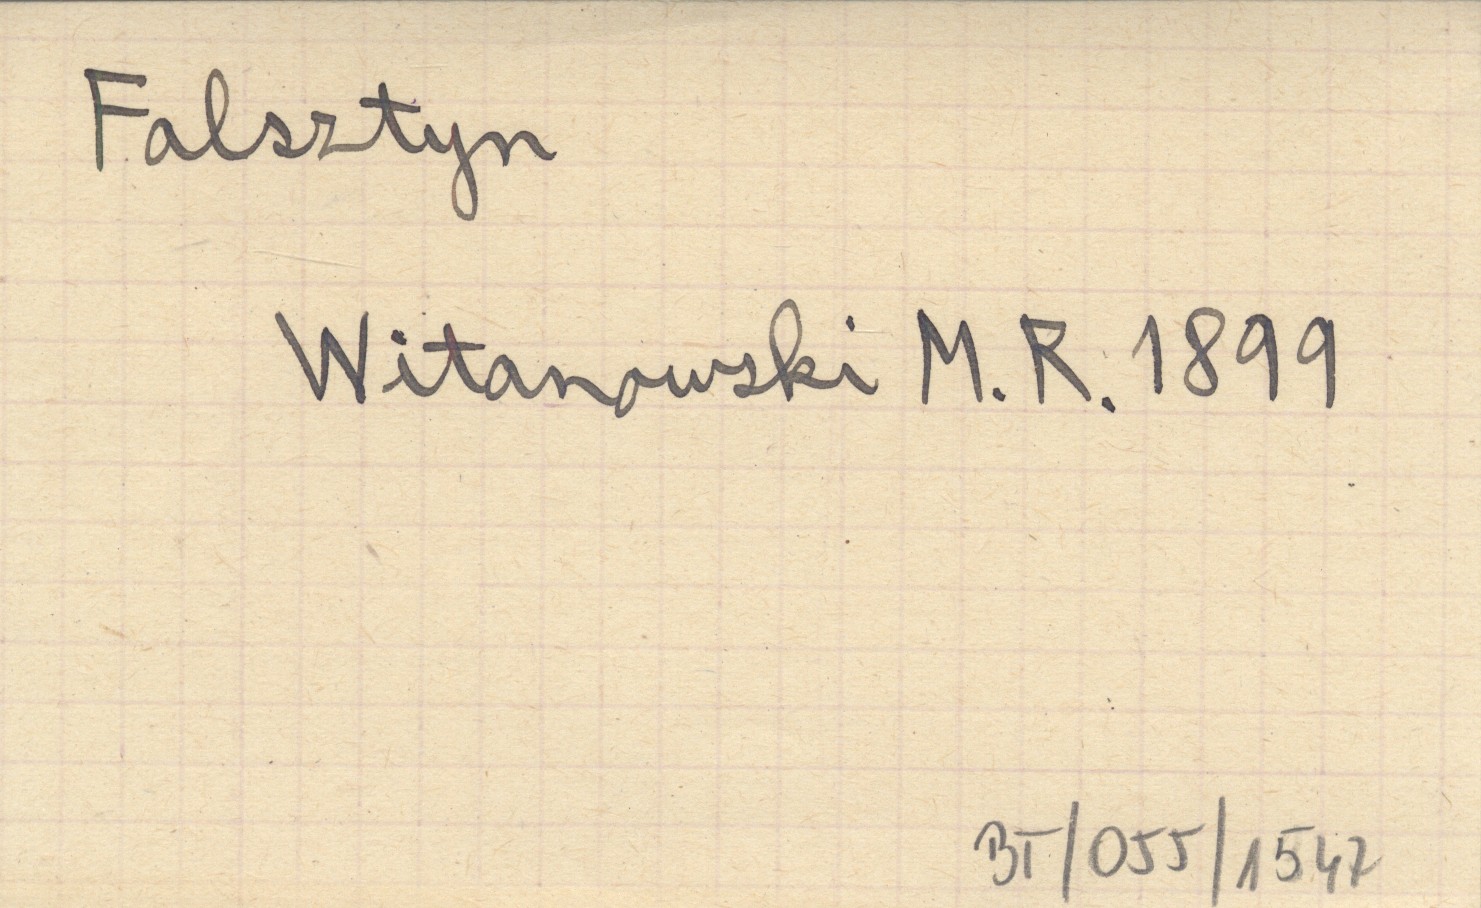 Falsztyn
Witanowski M. R. 1899
BT/055/1547